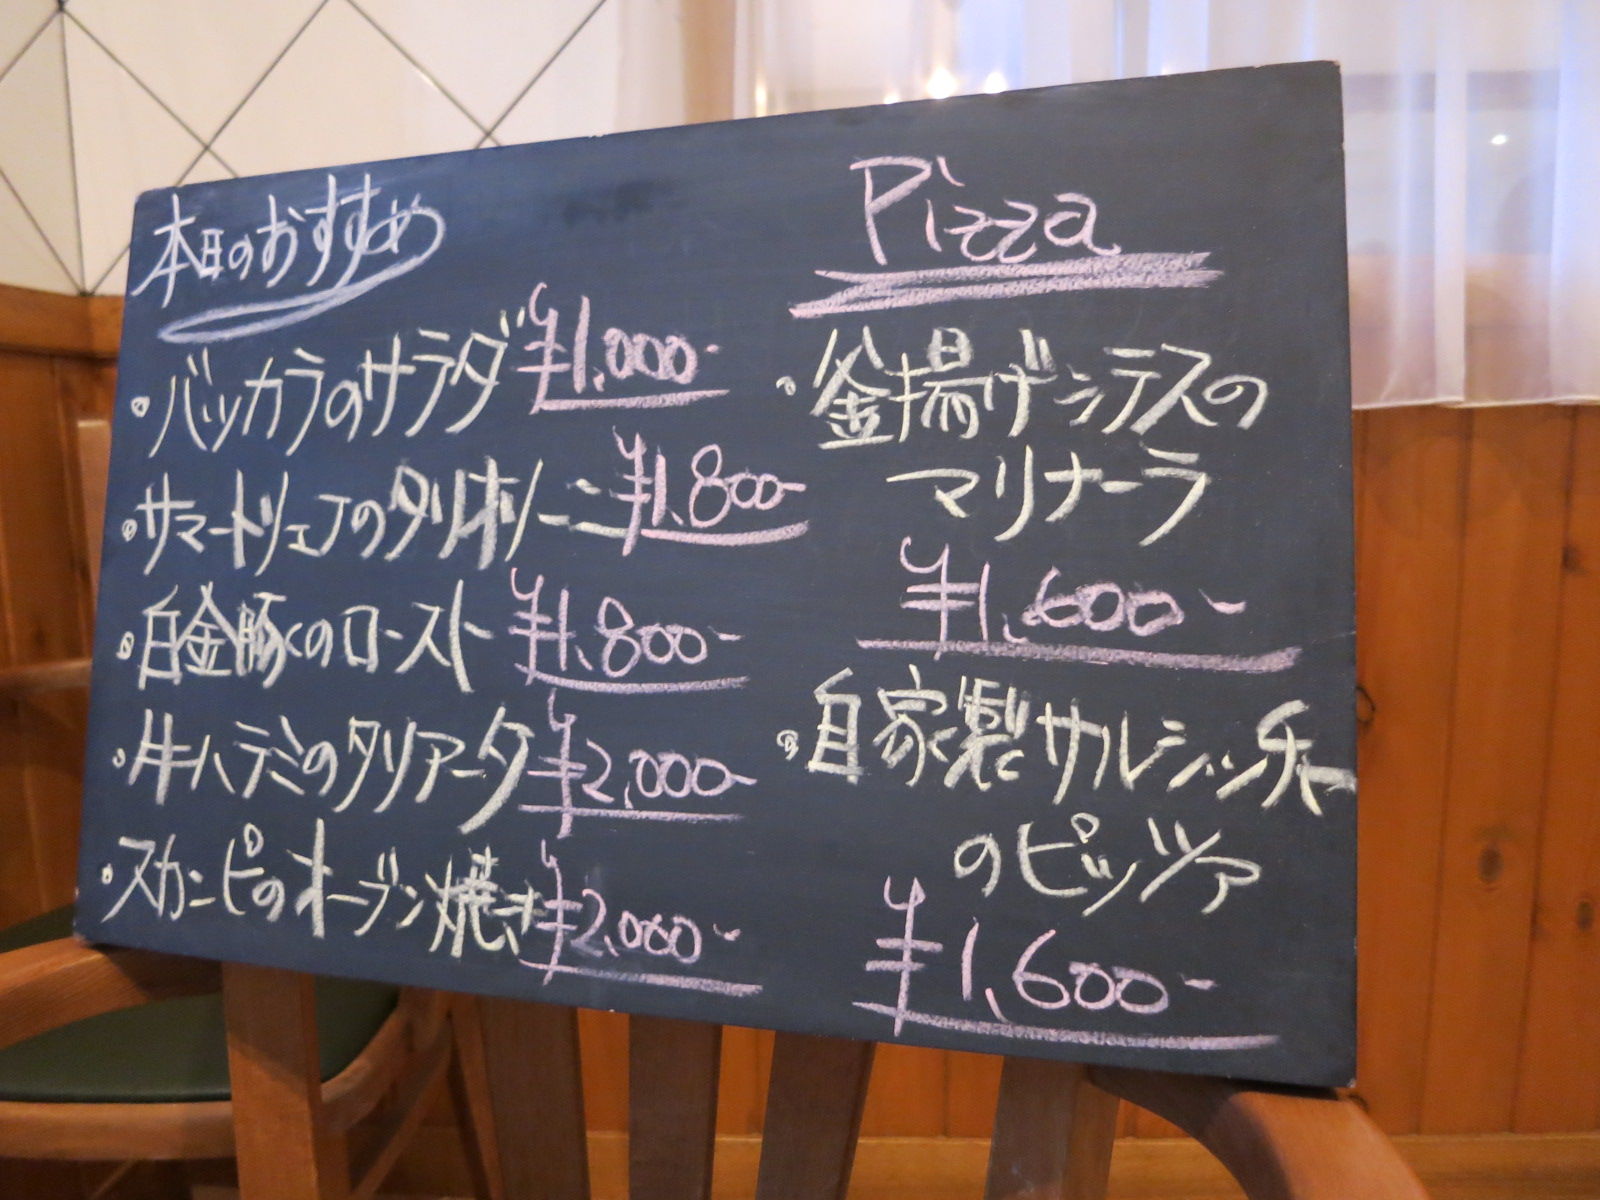 本日のおすすめ
・バッカラのサラダ ¥1,000-
・サマートリュフのタリオリーニ ¥1,800-
・白金豚くのロースト ¥1,800-
・牛ハラミのタリアータ ¥2,000-
・スカンピのオーブン焼き ¥2,000-
Pizza
・釜揚げシラスの
マリナーラ
¥1,600-
・自家製サルシッチャ
のピッツァ
¥1,600-